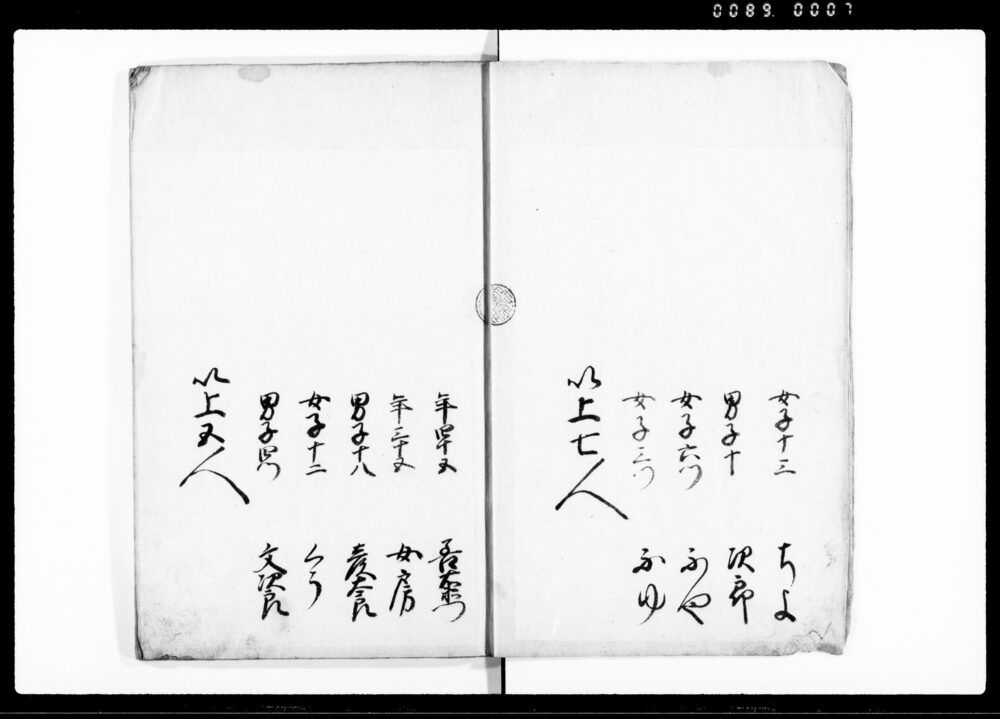 0089 0007
女子十三 ちよ
男子十 次郎
女子六つ ふや
女子三つ ふゆ
以上七人
年四十五
年三十五 女房
男子十八
女子十二 くら
男子四つ 文次郎
以上五人